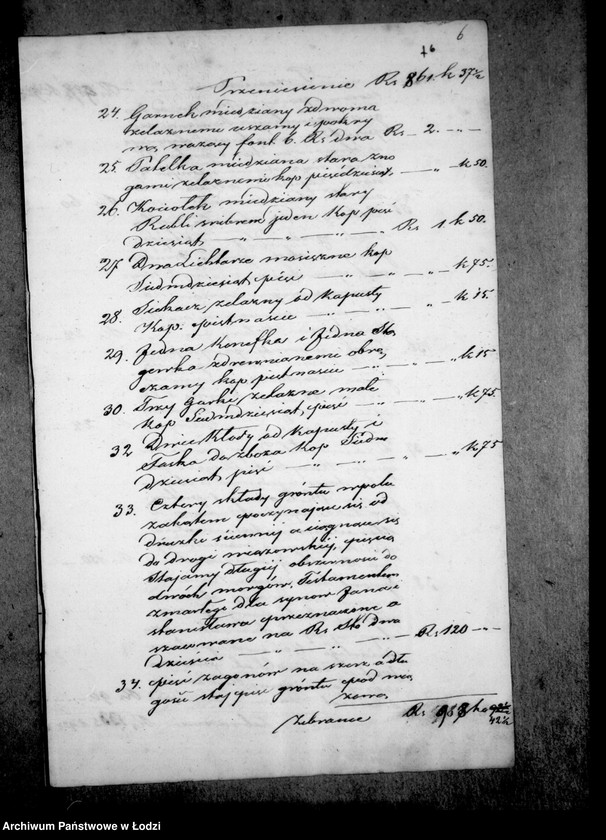 6
16
Przeniesienie Rs 861. k 37½
24. Garnek miedziany zdwoma
zelaznemi uszamy i pokry
wą, wazący funt. 6. Rs dwa Rs — 2. — „ —
25. Patelka miedziana stara zno
gami zelaznemi kop piędziesiąt, — „ — k 50.
26. Kociołek miedziany stary
Rubli srebrem jeden Kop pięć
dziesiąt, — „ — „ — „ — Rs 1. k 50.
27. Dwa Lichtarze mosięzne kop
Siedmdziesiąt, pięć — „ — „ — „ — k 75.
28. Siekacz zelazny od kapusty
Kop. piętnaście — „ — „ — „ — k 15.
29. Jedna Konefka i Jedna Sto
gewka zdrewnianemi obrę,
czamy kop piętnaście — „ — „ — „ k 15
30. Trzy Garki zelazne małe
kop Siedmdziesiąt, pięć — „ — „ — k 75.
32 Dwie Kłody od kapusty i
Faska do zboza kop Siedm
dziesiąt, pięć — „ — „ — „ k 75
33. Cztery składy gróntu wpolu
zakątem poczynające się od
drużki siennej a ciągnące się
do drogi mszonowskiej, pięcią
Stajamy długiej obszerności do
dwóch morgów, Testamentem
zmarłego dla synów Jana i
Stanisława przeznaczone a
szacowane na Rs Sto dwa
dzieścia — „ — „ — „ — Rs 120 — „ —
34. pięć zagonów na szerz a dłu
gość staj pięć gróntu pod
Zebranie Rs 988 ko 42½